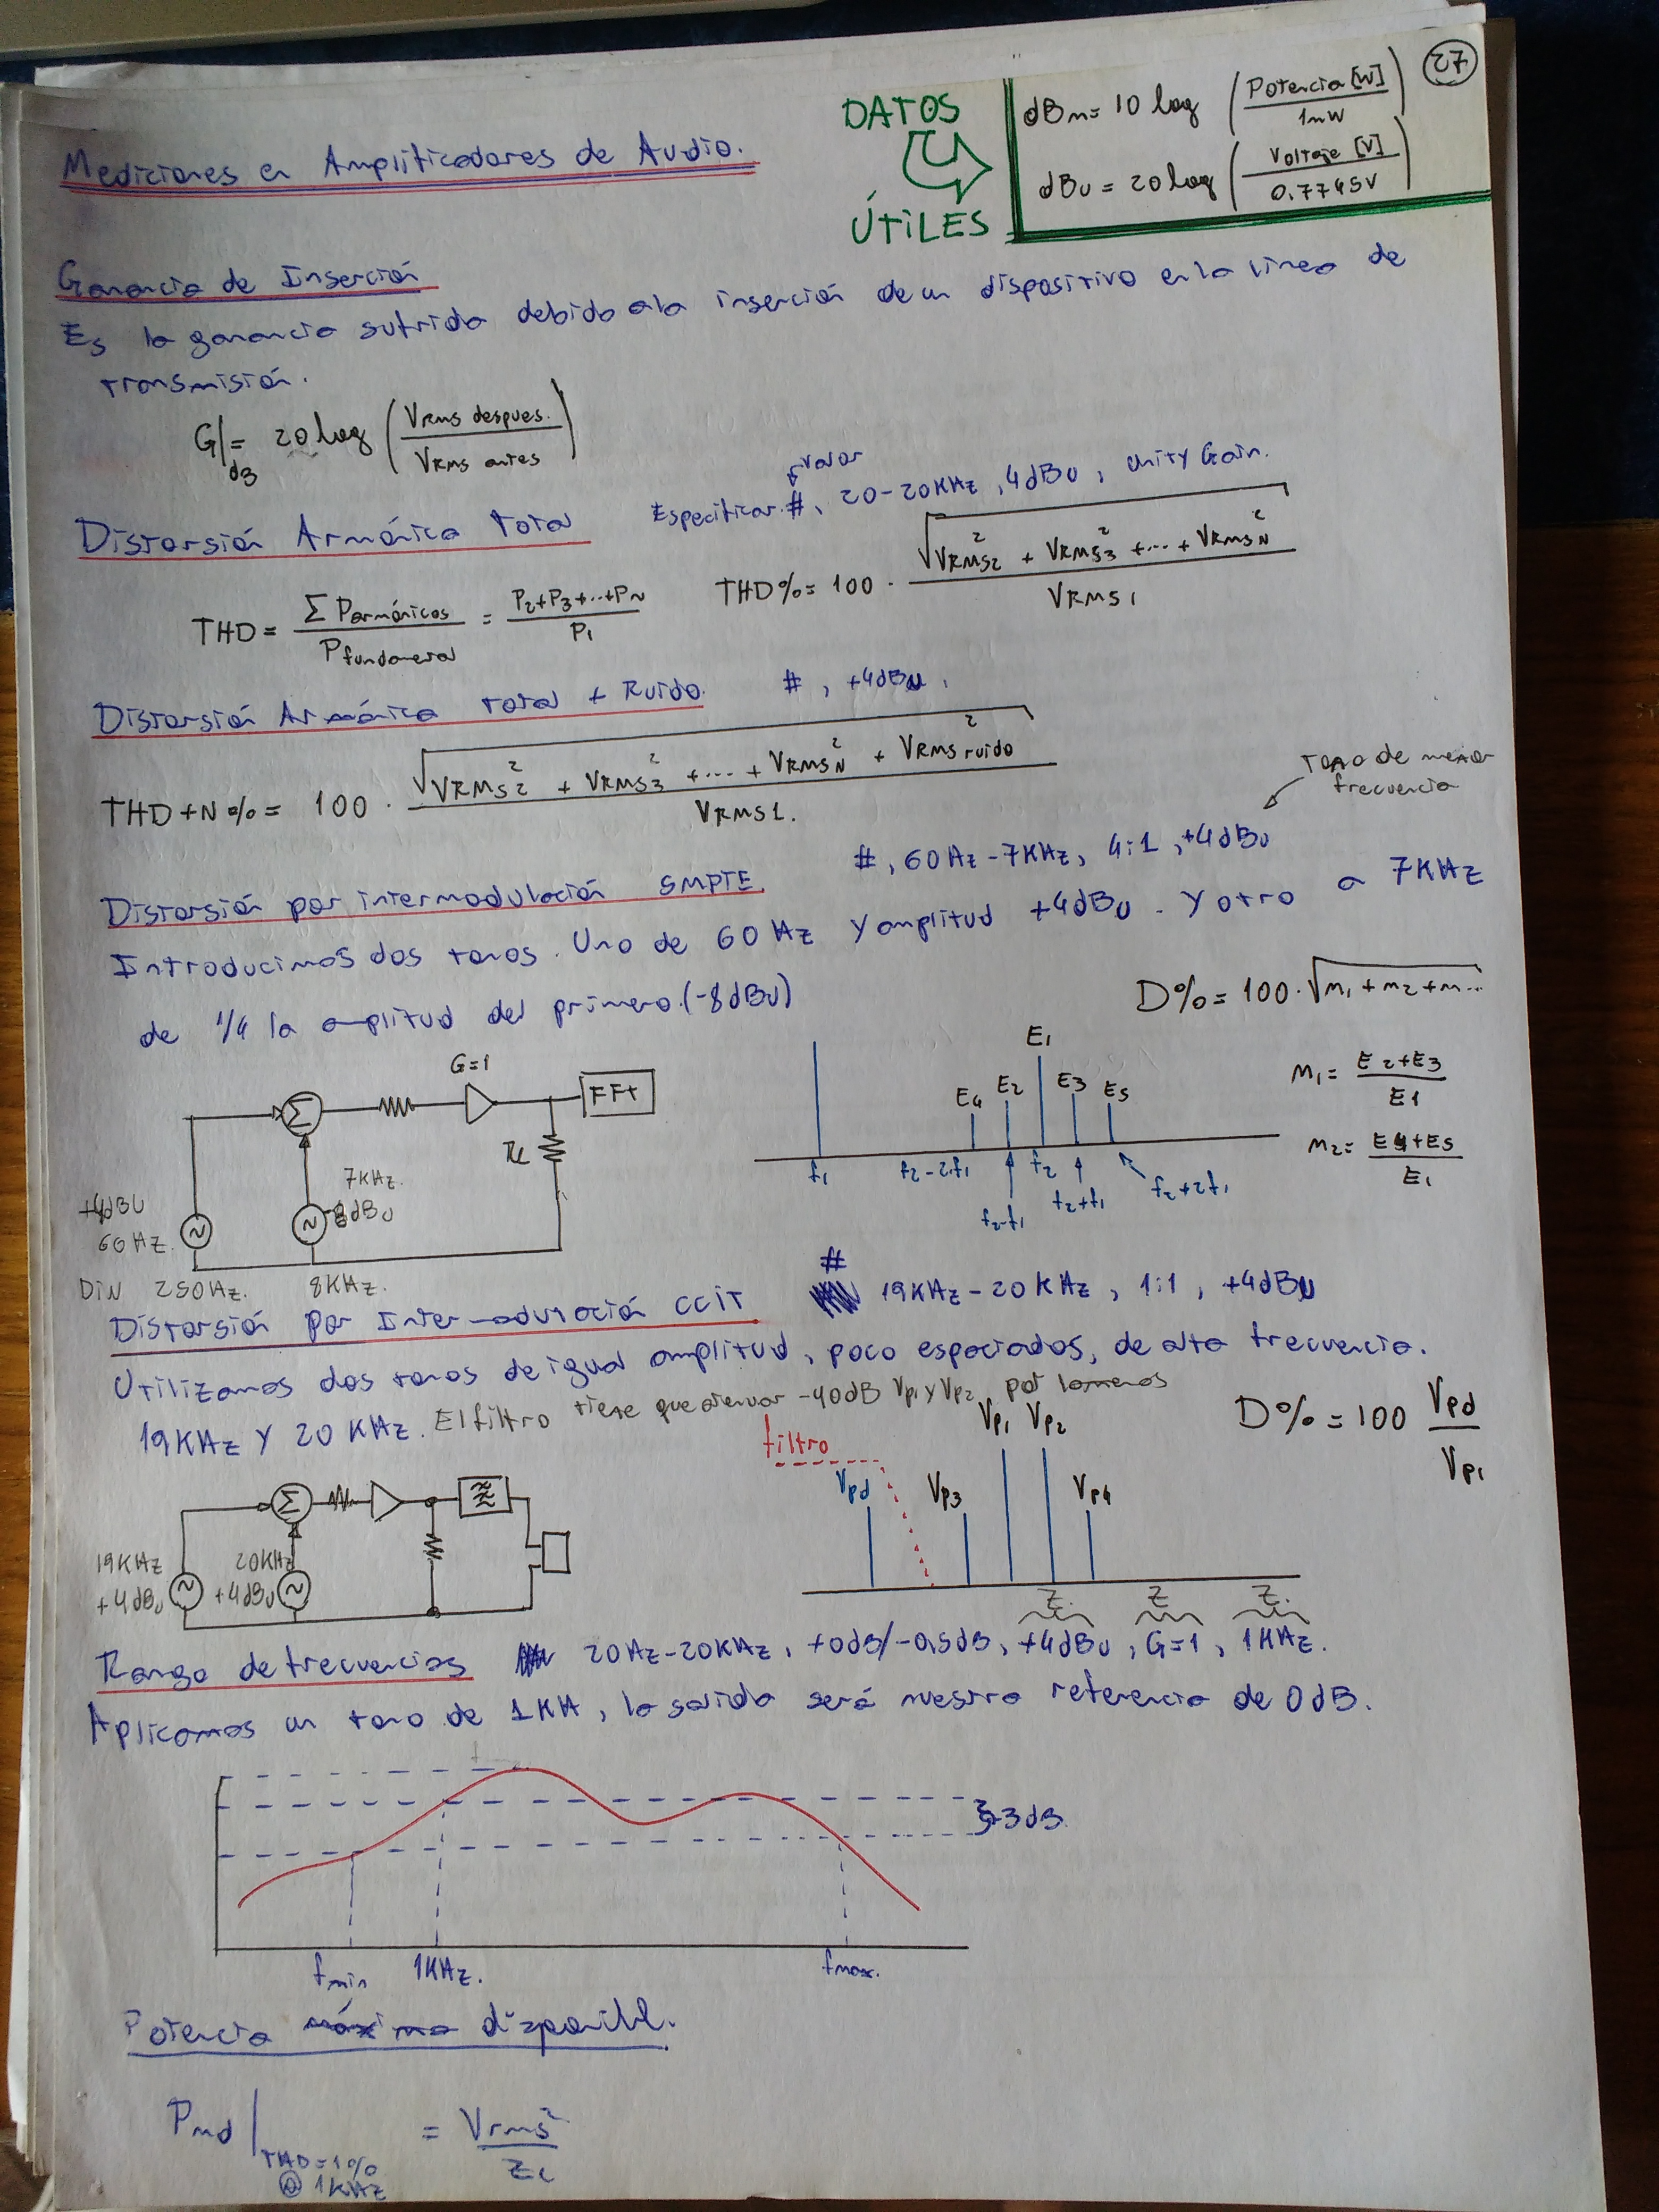 27
DATOS
ÚTILES
dBm = 10 log (Potencia [W] / 1mW)
dBu = 20 log (Voltaje [V] / 0.7745V)
Mediciones en Amplificadores de Audio.
Ganancia de Inserción
Es la ganancia sufrida debido a la inserción de un dispositivo en la línea de
transmisión.
G|dB = 20 log (VRMS despues. / VRMS antes)
Distorsión Armónica Total
valor
Especificar: #, 20-20KHz, 4dBu, Unity Gain.
THD = Σ Parmónicos / Pfundamental = P2+P3+...+PN / P1
THD% = 100 · √(VRMS2² + VRMS3² + ... + VRMSN²) / VRMS1
Distorsión Armónica total + Ruido. #, +4dBu,
THD+N% = 100 · √(VRMS2² + VRMS3² + ... + VRMSN² + VRMSruido²) / VRMS1.
Tono de menor
frecuencia
#, 60Hz-7KHz, 4:1, +4dBu
Distorsión por intermodulación SMPTE.
Introducimos dos tonos. Uno de 60Hz y amplitud +4dBu. Y otro a 7KHz
de 1/4 la amplitud del primero. (-8dBu)
D% = 100·√m1+m2+m...
G=1
FFT
RL
7KHz.
-8dBu
+4dBu
60Hz.
DIN 250Hz. 8KHz.
E4 E2 E1 E3 E5
f1 f2-2f1 f2-f1 f2 f2+f1 f2+2f1
m1 = E2+E3 / E1
m2 = E4+E5 / E1
Distorsión por Intermodulación CCIT # 19KHz-20KHz, 1:1, +4dBu
Utilizamos dos tonos de igual amplitud, poco espaciados, de alta frecuencia.
19KHz Y 20KHz. El filtro tiene que atenuar -40dB Vp1 y Vp2 por lo menos
D% = 100 Vpd / Vp1
filtro
Vpd Vp3 Vp1 Vp2 Vp4
Σ
19KHz
+4dBu
20KHz
+4dBu
Z. Z Z.
Rango de frecuencias 20Hz-20KHz, +0dB/-0,5dB, +4dBu, G=1, 1KHz.
Aplicamos un tono de 1KH, la salida será nuestra referencia de 0dB.
+3dB
fmin 1KHz. fmax.
Potencia máxima disponibl.
Pmd | THD=1% @ 1KHz = Vrms² / ZL